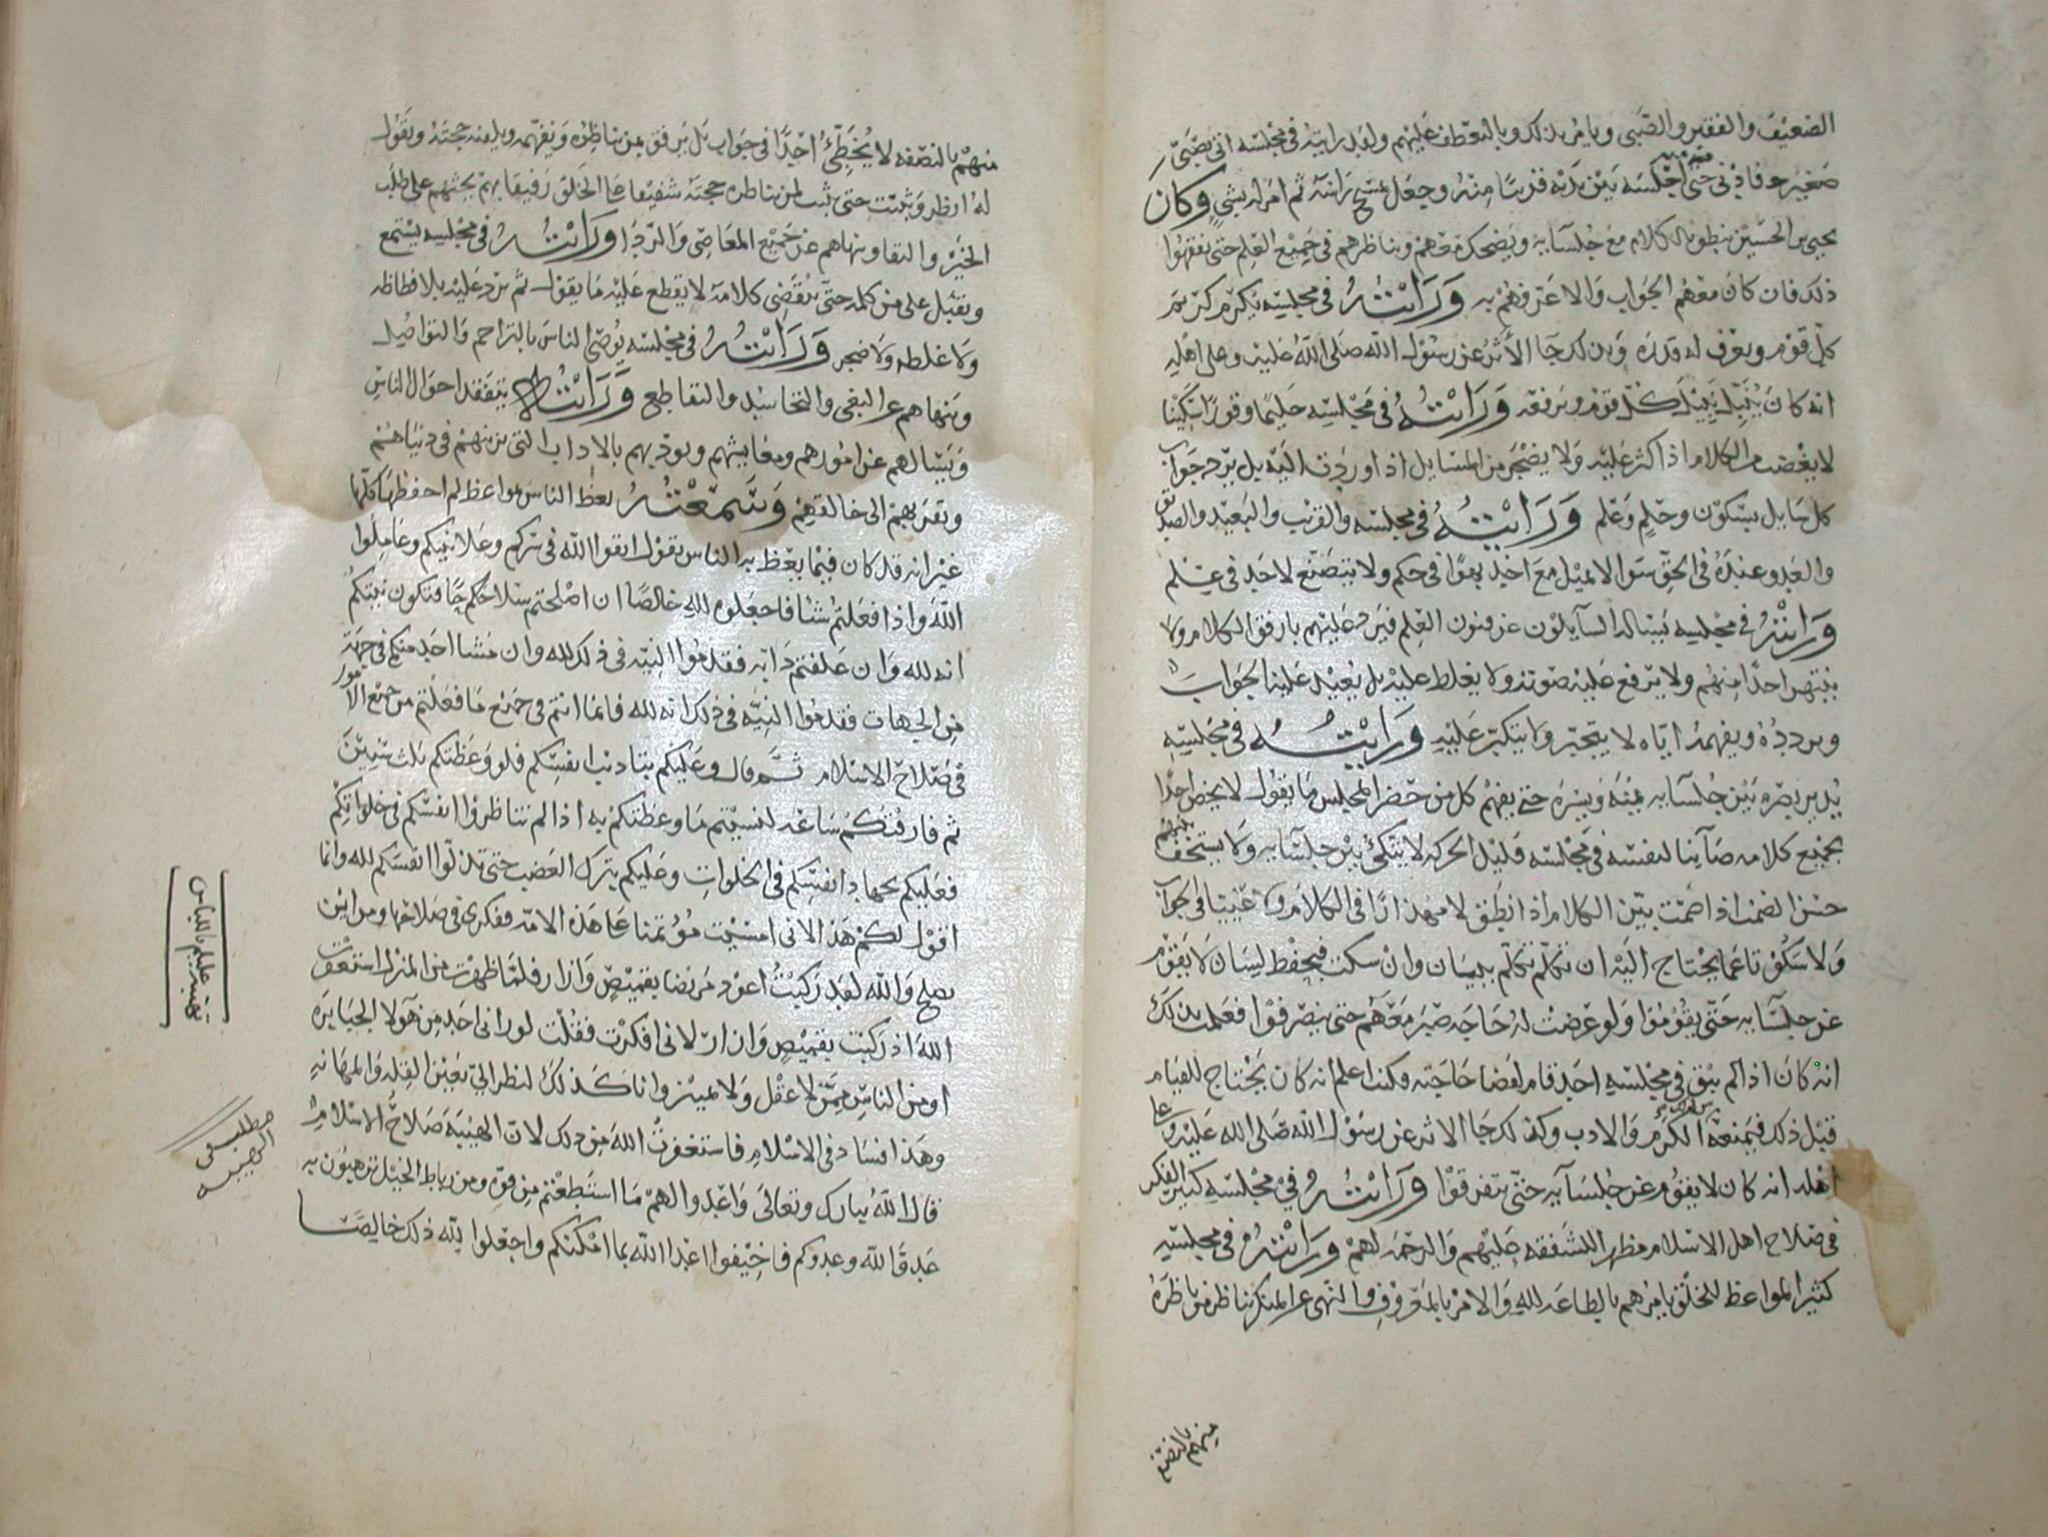 الضعيف والفقير والصبي ويامر بذلك وبالتعطف عليهم ولقد رايته في مجلسه اتى بصبي
صغير فاذنى حتى اجلسه بين يديه قريبا منه وجعل يمسح راسه ثم امر له بشي وكان
يحيى بن الحسين ينطق بالكلام مع جلسايه ويضحك معهم ويناظرهم في جميع العلم حتى يفقهوا
ذلك فان كان معهم الجواب والا عرفهم به ورايته في مجلسه يكرم كريم
كل قوم ويعرف له قدره وبذلك جا الأثر عن رسول الله صلى الله عليه وعلى اهله
انه كان يبجل كل قوم ويرفعه ورايته في مجلسه حليما وقورا سكينا
لا يغضب من الكلام اذا كثر عليه ولا يضجر من المسايل اذا وردت اليه بل يرد جواب
كل سايل بسكون وحلم وعلم ورايته في مجلسه والقريب والبعيد والصديق
والعدو عنده في الحق سوا لا يميل مع احد بهوا في حكم ولا يتصنع لاحد في علم
ورايته في مجلسه يساله السايلون عن فنون العلم فيرد عليهم بارفق الكلام ولا
ينتهر احدا منهم ولا يرفع عليه صوته ولا يغلط عليه بل يعيد عليه الجواب
ويردده ويفهمه اياه لا يتجبر ولا يتكبر عليه ورايته في مجلسه
يدير بصره بين جلسايه يمنه ويسره حتى يفهم كل من حضر المجلس ما يقول لا يخص احدا
بجميع كلامه صاينا لنفسه في مجلسه قليل الحركه لا يتكئ بين جلسايه ولا يستخف بهم
حسن الصمت اذا صمت بين الكلام اذا نطق لا مهذارا في الكلام ولا عييا في الجواب
ولا سكوتا عما يحتاج اليه ان تكلم تكلم ببيان وان سكت فبحفظ لسان لا يقوم
عن جلسايه حتى يقوموا ولو عرضت له حاجه صبر معهم حتى ينصرفوا فعلمت بذلك
انه كان اذا لم يبق في مجلسه احد قام لقضا حاجته وكنت اعلم انه كان يحتاج للقيام
قبل ذلك فيمنعه الكرم والادب وكذلك جا الاثر عن رسول الله صلى الله عليه وعلى
اهله انه كان لا يقوم عن جلسايه حتى يتفرقوا ورايته في مجلسه كثير الفكر
في صلاح اهل الاسلام مظهرا للشفقه عليهم والرحمه لهم ورايته في مجلسه
كثير المواعظ للخلق يامرهم بالطاعه لله والامر بالمعروف والنهي عن المنكر يناظر من ناظره
منهم بالنصفه
منهم بالنصفه لا يخطئ احدا في جواب بل يرفق بمن يناظره ويفهمه ويلقنه حجته ويقول
له انظر وتثبت حتى يثبت لمن ناظره حجته شفيقا على الخلق رفيقا بهم يحثهم على طلب
الخير والتقا وينهاهم عن جميع المعاصي والردا ورايته في مجلسه يستمع
ويقبل على من كلمه حتى ينقضي كلامه لا يقطع عليه ما يقول ثم يرد عليه بلا فظاظه
ولا غلطه ولا ضجر ورايته في مجلسه يوصي الناس بالتراحم والتواصل
وينهاهم عن البغي والتحاسد والتقاطع ورايته يتفقد احوال الناس
ويسالهم عن امورهم ومعايشهم ويودبهم بالاداب التي تزينهم في دنياهم
وتقربهم الى خالقهم وسمعته يعظ الناس بمواعظ لم احفظها كلها
غير انه قد كان فيما يعظ به الناس يقول اتقوا الله في سركم وعلانيتكم وعاملوا
الله واذا فعلتم شيا فاجعلوه لله خالصا ان اصلحتم سلاحكم فتكون نيتكم
انه لله وان علفتم دابه فقدموا النيه في ذلك لله وان مشا احد منكم في جهة
من الجهات فقدموا النيه في ذلك انه لله فانما انتم في جميع ما فعلتم من جميع الامور
في صلاح الاسلام ثم قال وعليكم بتاديب انفسكم فلو وعظتكم ثلث سنين
ثم فارقتكم ساعه لنسيتم ما وعظتكم به اذا لم تناظروا انفسكم في خلواتكم
فعليكم بجهاد انفسكم في الخلوات وعليكم بترك الغضب حتى تذلوا انفسكم لله وانما
اقول لكم هذا لاني امسيت موتمنا على هذه الامه وفكري في صلاحها ومن اين
يصلح والله لقد ركبت اعود مريضا بقميص وازار فلما ظهرت من المنزل استغفرت
الله اذ ركبت بقميص وازار لاني افكرت فقلت لو راني احد من هولا الجبابره
او من الناس ممن لا عقل ولا تمييز وانا كذلك لنظر الي بعين القله والمهانه
وهذا فساد في الاسلام فاستغفرت الله من ذلك لان الهيبة صلاح الاسلام
قال الله تبارك وتعالى واعدوا لهم ما استطعتم من قوه ومن رباط الخيل ترهبون به
عدو الله وعدوكم فاخيفوا اعدا الله بما امكنكم واجعلوا لله ذلك خالصا
مطلب في
الهيبه